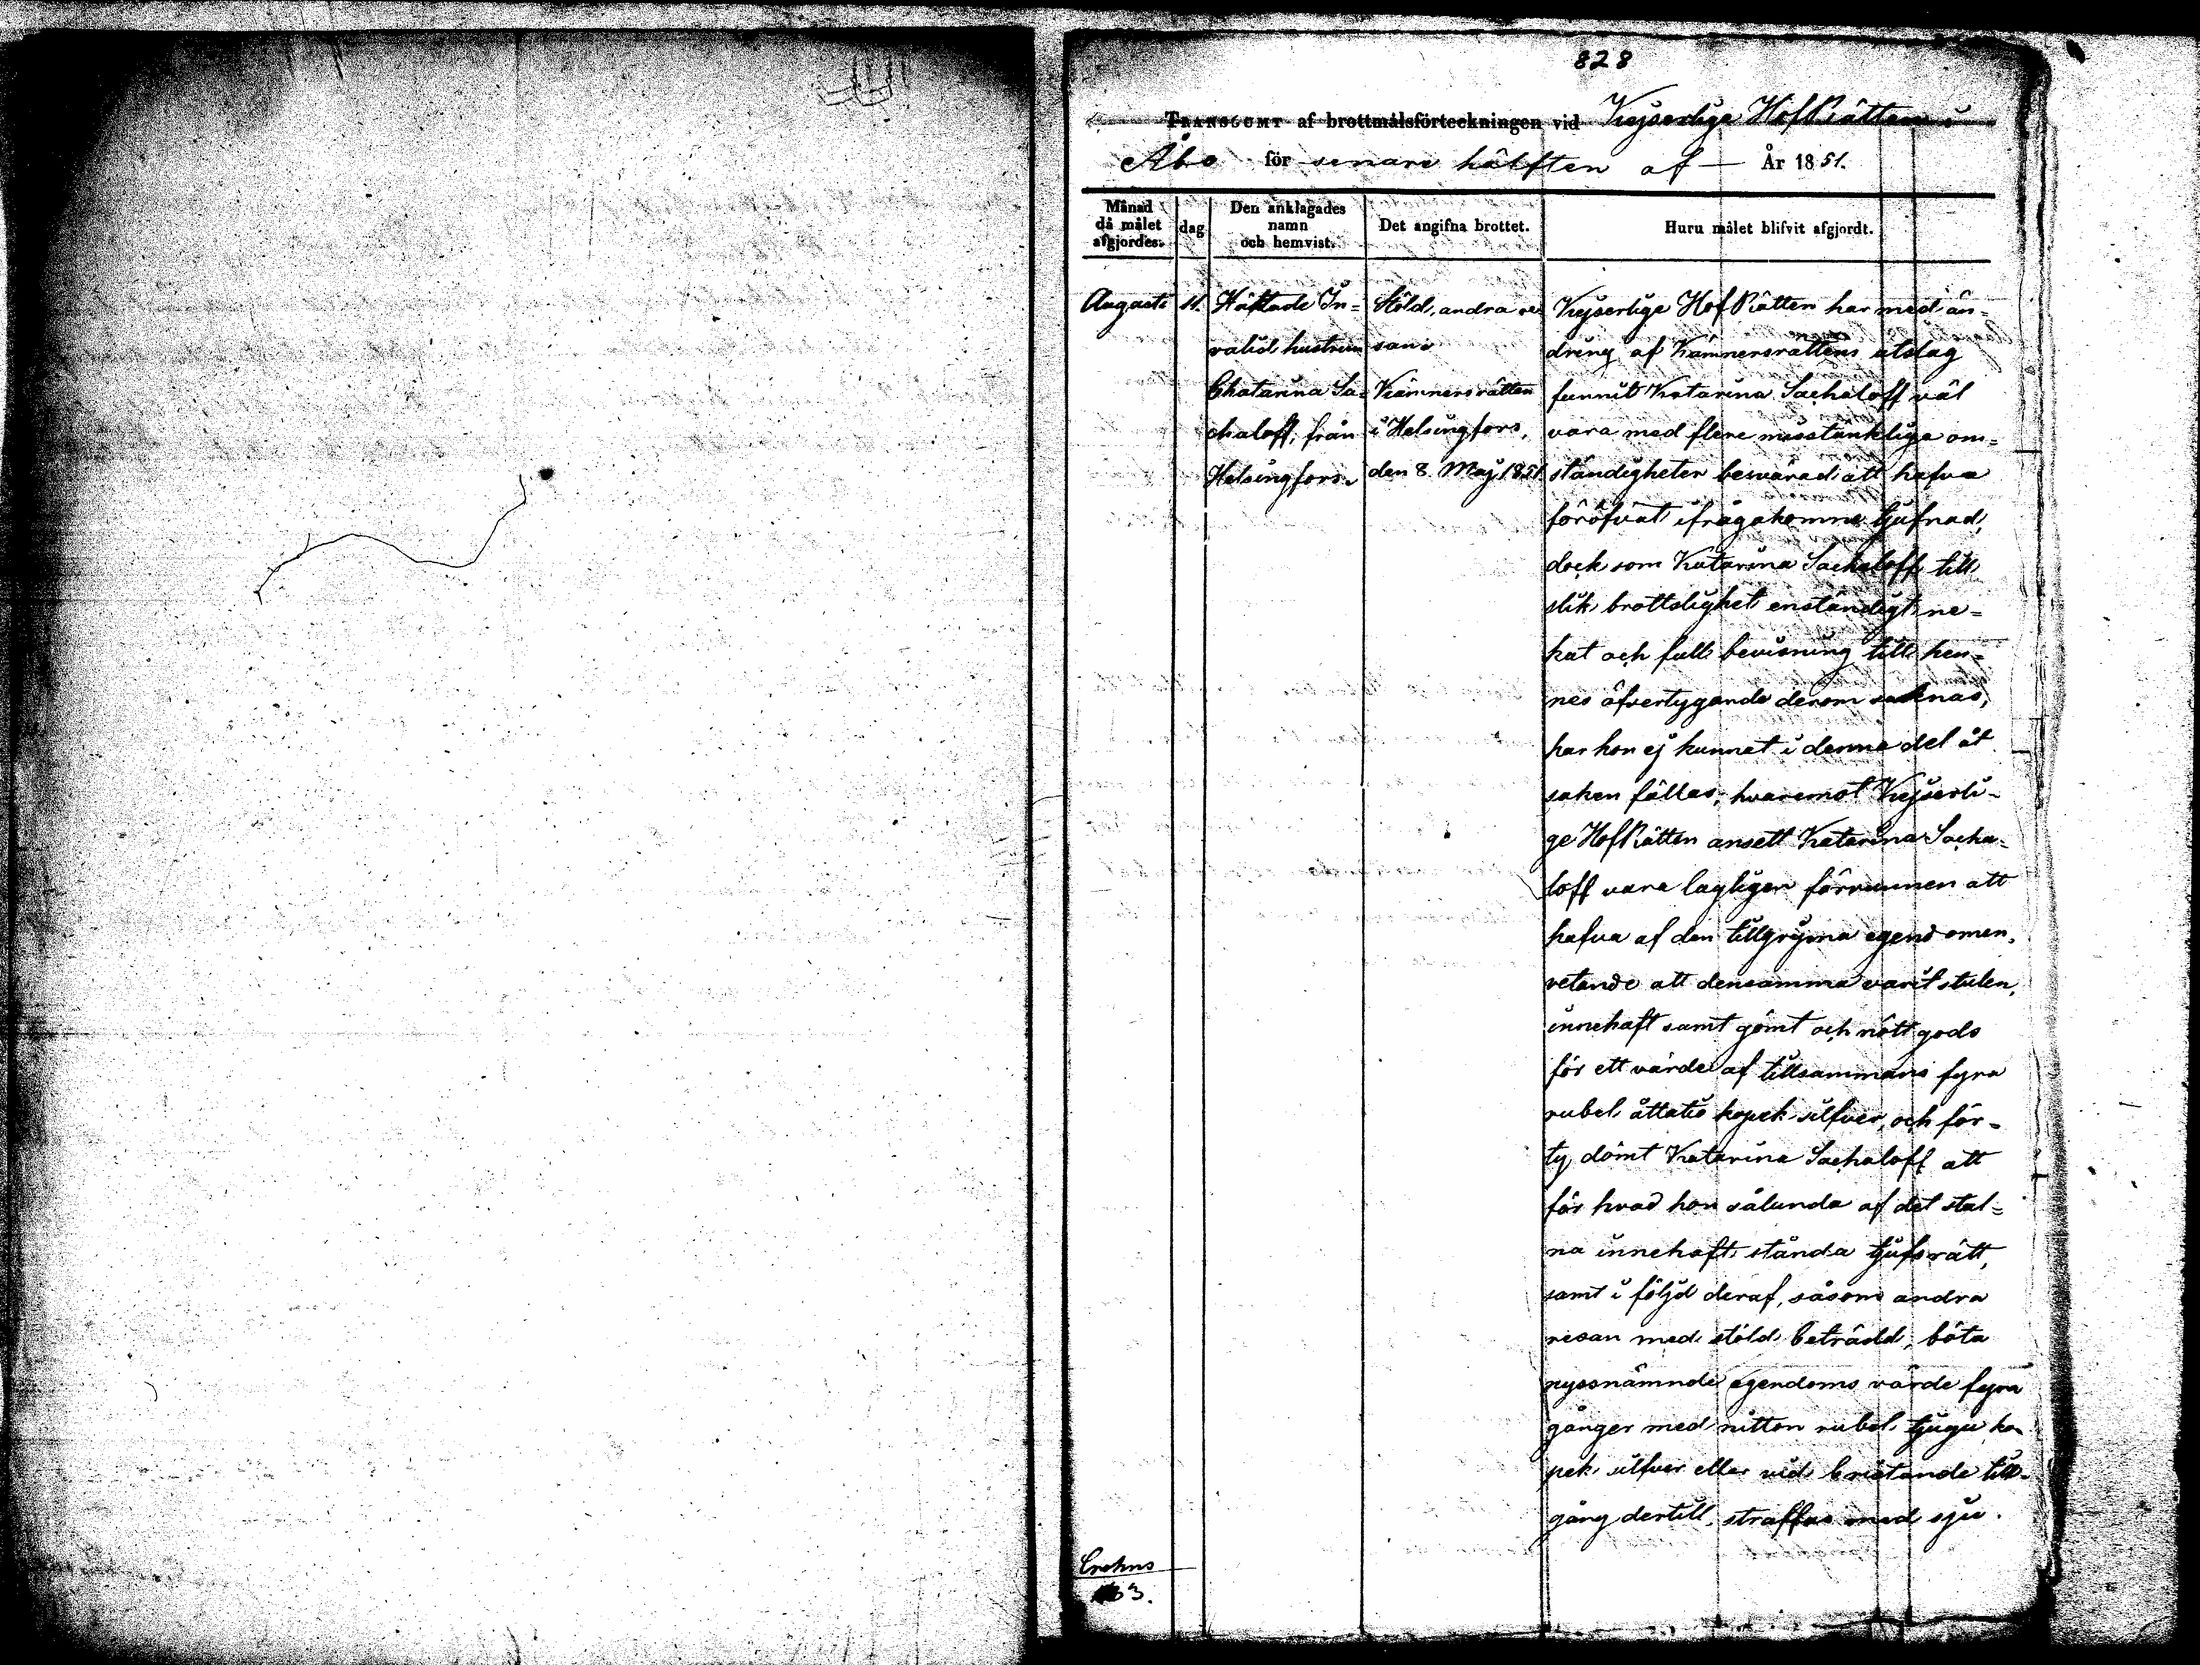 828
TRANSSUMT af brottmålsförteckningen vid Kejserliga HofRätten i
Åbo för senare hälften af År 1851.
Månad
då målet
afgjordes.
dag
Den anklagades
namn
och hemvist.
Det angifna brottet.
Huru målet blifvit afgjordt.
Augusti
11.
Häktade In-
valid hustrun
Chatarina Sa-
chaloff, från
Helsingfors.
Stöld, andra re-
san.
Kämnersrätten
i Helsingfors,
den 8 Maj 1851
Kejserlige HofRätten har med än-
dring af Kämnersrättens utslag
funnit Katarina Sachaloff väl
vara med flere misstänklige om-
ständigheter besvärad att hafva
föröfvat ifrågakomne tjufnad,
dock som Katarina Sachaloff till
slik brottslighet enständigt ne-
kat och full bevisning till hen-
nes öfvertygande derom saknas,
har hon ej kunnat i denna del åt
saken fällas; hvaremot Kejserli-
ge HofRätten ansett Katarina Sacha-
loff vara lagligen förvunnen att
hafva af den tillgripna egendomen,
vetande att densamma varit stulen,
innehaft samt gömt och nött gods
för ett värde af tillsammans fyra
rubel åttatio kopek silfver, och för-
ty dömt Katarina Sachaloff att
för hvad hon sålunda af det stul-
na innehaft, stånda tjufsrätt,
samt i följd deraf, såsom andra
resan med stöld beträdd, böta
nyssnämnde egendoms värde fyra
gånger med nitton rubel tjugu ko-
pek silfver eller vid bristande till-
gång dertill, straffas med sju
Crohns
3.